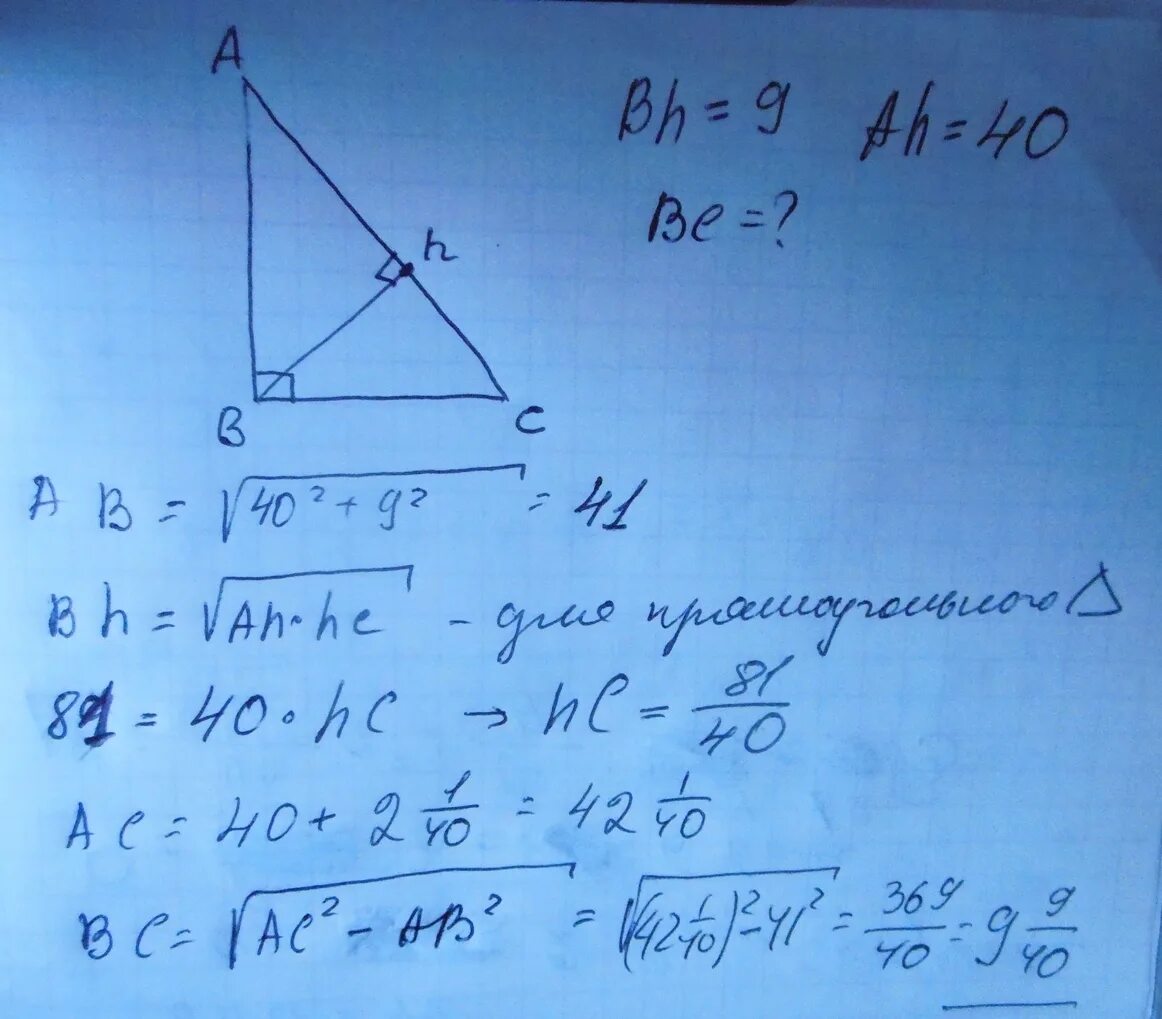 A
Bh = 9 Ah = 40
Bc = ?
h
B
C
AB = √(40² + 9²) = 41
Bh = √(Ah·hc) - для прямоугольного Δ
81 = 40·hC → hC = 81/40
AC = 40 + 2 1/40 = 42 1/40
BC = √(AC² - AB²) = √((42 1/40)² - 41²) = 369/40 = 9 9/40